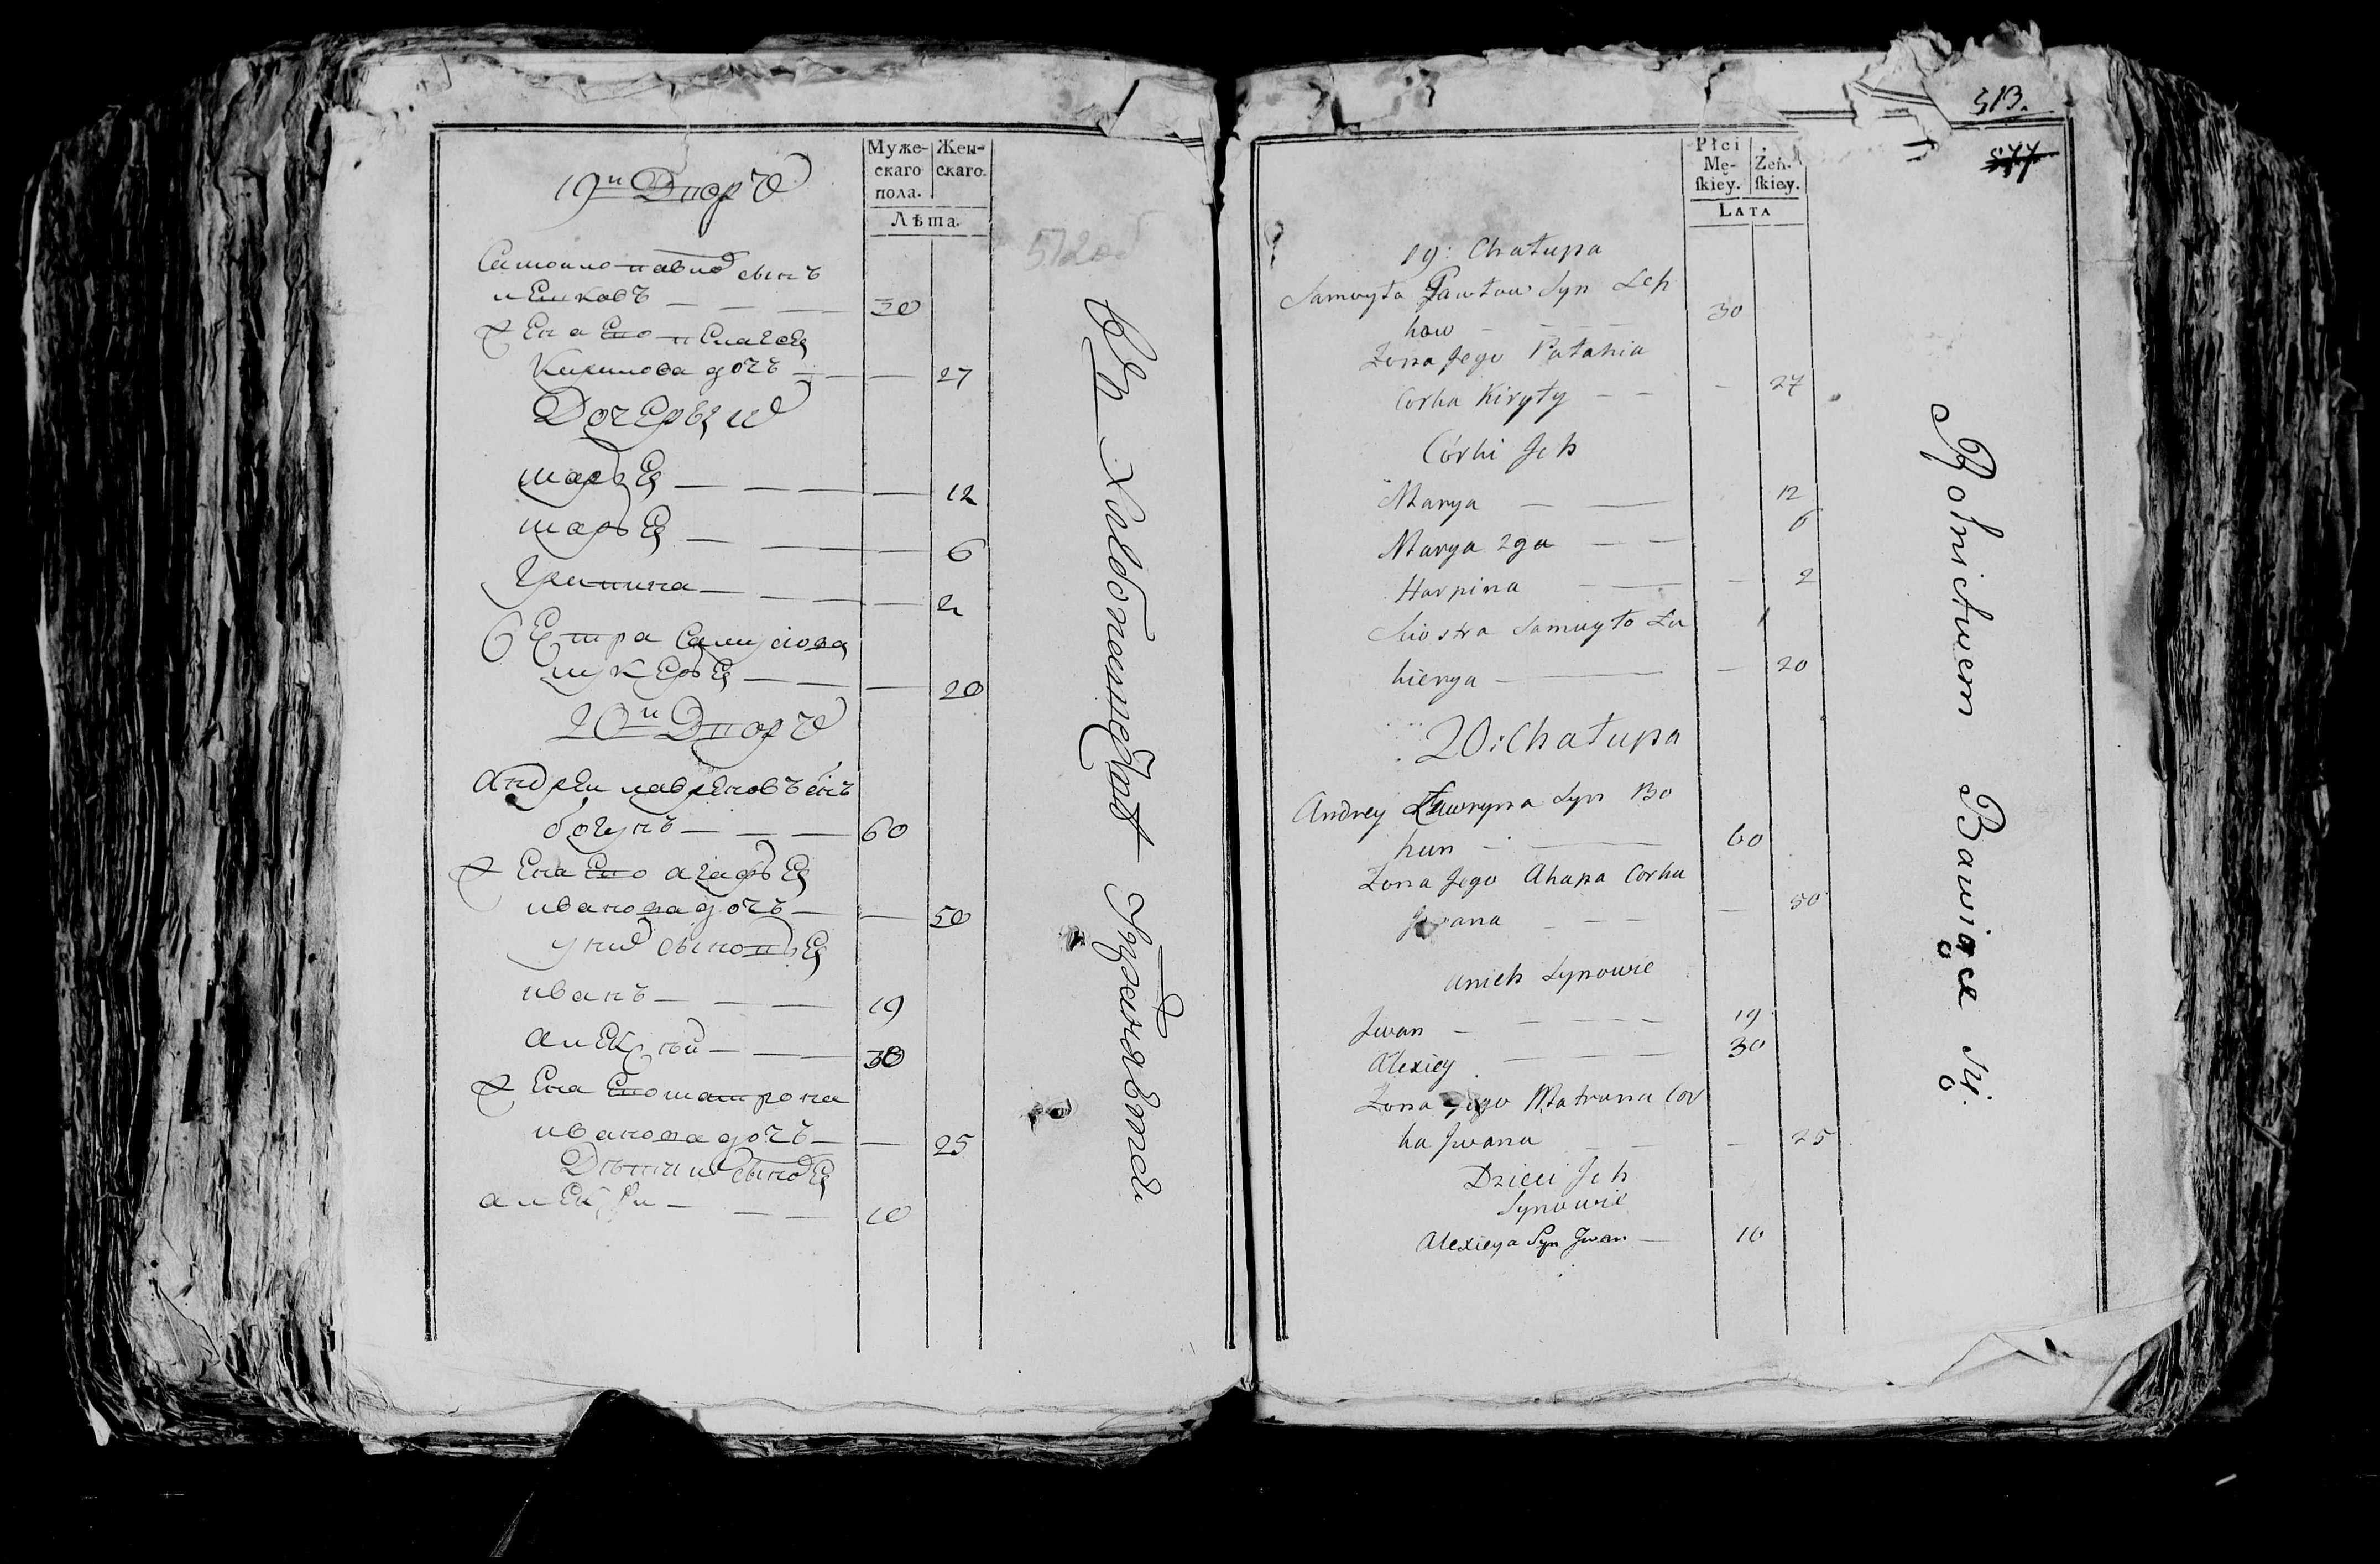 Муже-
скаго
пола.
Жен-
скаго.
Лѣта.
19й Дворъ
Самоило Павлов сынъ
Лешковъ — — — 30
Жена Ево Пелагея
Кирилова дочъ — — — 27
Дочерьи
Марья — — — — 12
Марья — — — — 6
Грипина — — — — 2
Сестра Самуйлова
Лукерья — — — 20
20й Дворъ
Андреи Лавреновъ снъ
богунъ — — — 60
Жена Ево Агафья
Иванова дочъ — — 50
у них сыновья
Иванъ — — — 19
Алексѣй — — — 30
Жена Ево Матрона
Иванова дочъ — — 25
Дѣти их сыновья
Алексѣи — — — 10
512 об
Хлебопашествомъ Упражняются
513.
577
Płci
Mę-
ſkiey.
Żeń-
ſkiey.
LATA
19: Chałupa
Samuyło Pawłow Syn Leh
kow — — — 30
Żona Jego Pałahia
Corka Kiryły — — — 27
Córki Jch
Marya — — 12
Marya 2ga — — 6
Harpina — — 2
Siostra Samuyło Łu
kierya — — 20
20: Chałupa
Andrey Ławryna Syn Bo
hun — — 60
Żona Jego Ahapa Corka
Jwana — — — 50
Unich Synowie
Jwan — — — — 19
Alexiey — — — 30
Żona Jego Matruna Cor
ka Jwana — — — 25
Dzieci Jch
Synowie
Alexieya Syn Jwan — 10
Rolnictwem Bawiące Się.